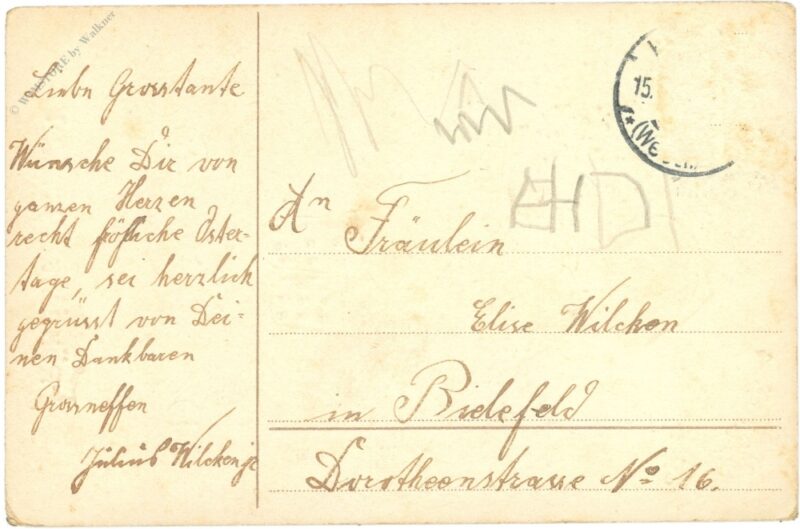 © WORLDSTORE by Walkner
Liebe Grosstante
Wünsche Dir von
ganzen Herzen
recht fröhliche Oster-
tage, sei herzlich
gegrüsst von Dei-
nen Dankbaren
Grossneffen
Julius Wilcken jr
An
Fräulein
Elise Wilcken
in Bielefeld
Dorotheenstrasse No 16.
15.